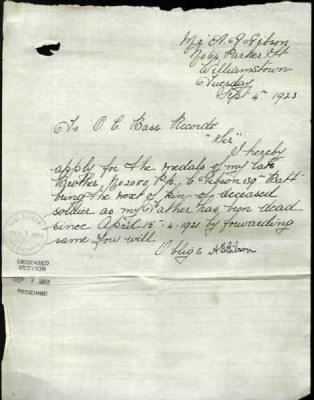 Mr A. G. Gibson
No 64 Parker St
Williamstown
Tuesday
Sept 4th 1923
To O. C. Base Records
"Sir"
I hereby
apply for the medals of my late
Brother, No 2080 Pte C Gibson 39th Batt
being the next of kin of deceased
soldier as my Father has been dead
since April 15-4-1921 by forwarding
same you will
Oblige A G Gibson
DECEASED
SECTION
SEP 7
RECEIVED